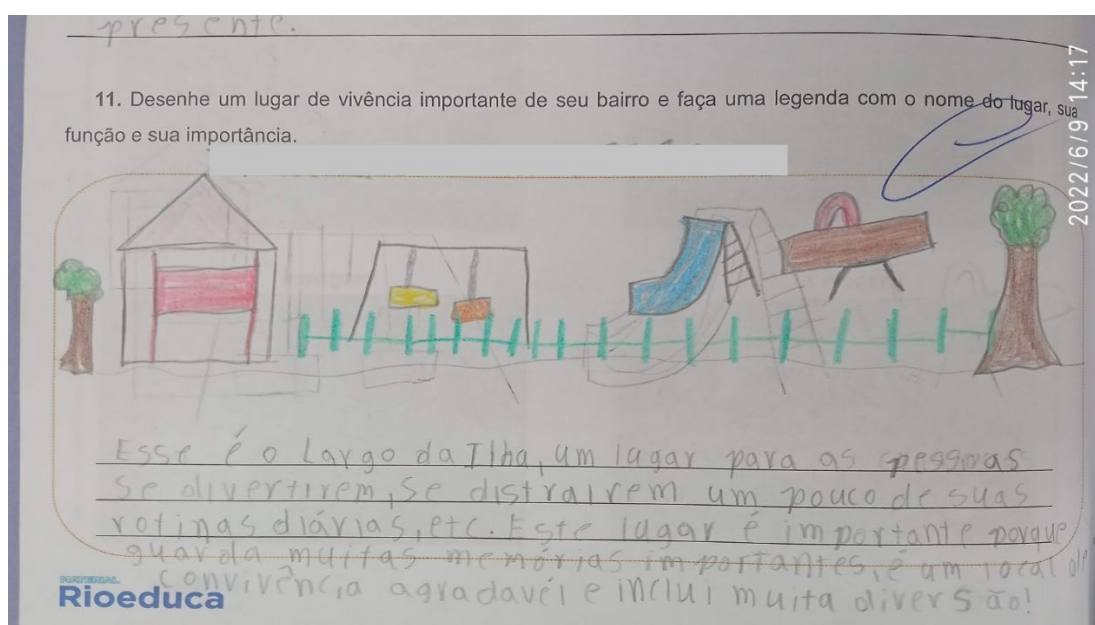 presente.
11. Desenhe um lugar de vivência importante de seu bairro e faça uma legenda com o nome do lugar, sua
função e sua importância.
2022/6/9 14:17
Esse é o Largo da Ilha, um lugar para as pessoas
se divertirem, se distrairem um pouco de suas
rotinas diárias, etc. Este lugar é importante porque
guarda muitas memórias importantes, é um local de
convivência agradavél e inclui muita diversão!
MATERIAL
Rioeduca